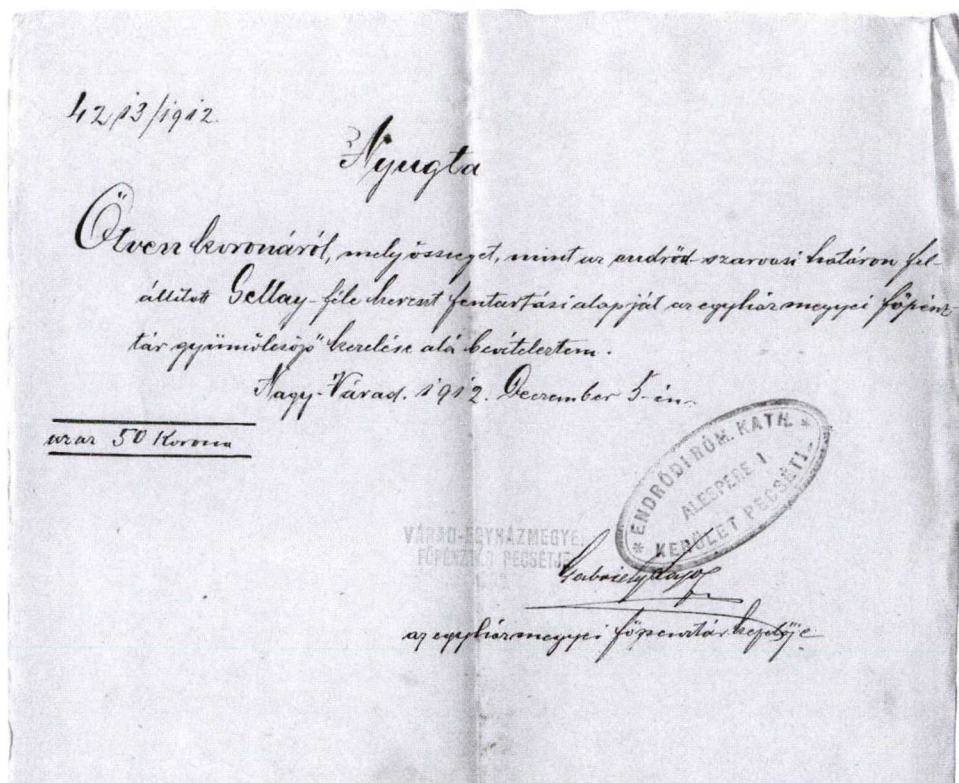 4213/1912
Nyugta
Ötven koronáról, mely összeget, mint az endrőd-szarvasi határon fel-
állított Gellay-féle kereszt fentartási alapját az egyházmegyei főpénz
tár gyümölcsöző kezelése alá bevételeztem.
Nagy-Várad. 1912. December 5-én.
azaz 50 Korona
* ENDRŐDI RÓM. KATH. *
ALESPERE I
KERÜLET PECSÉTJE
VÁRAD-EGYHÁZMEGYE
FŐPÉNZTÁR PECSÉTJE
Lajos
az egyházmegyei főpénztár kezelője